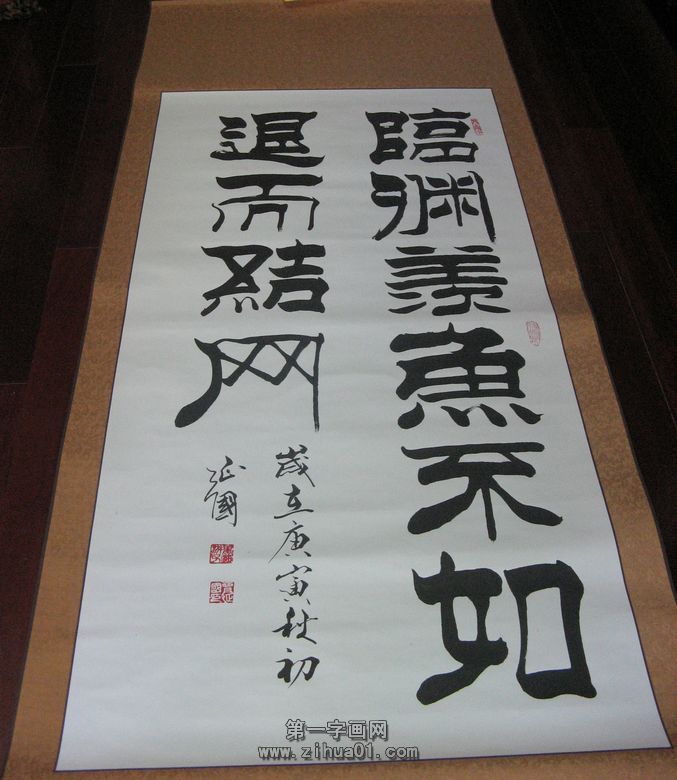 臨渊羡魚不如
退而結网
歲在庚寅秋初
延國
第一字画网
www.zihua01.com